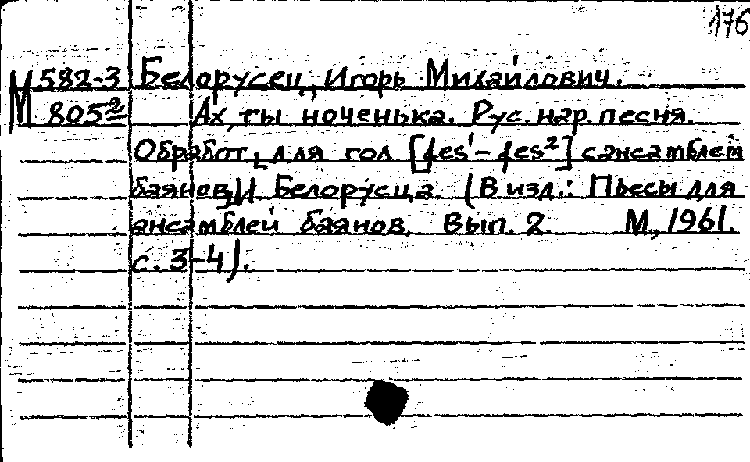 176
М 582-3 Белорусец, Игорь Михайлович.
805² Ах, ты ноченька. Рус. нар. песня.
Обработ. [для гол [fes¹ – fes²] с ансамблем
баянов] И. Белорусца. (В изд.: Пьесы для
ансамблей баянов. Вып. 2. М., 1961.
с. 3-4).